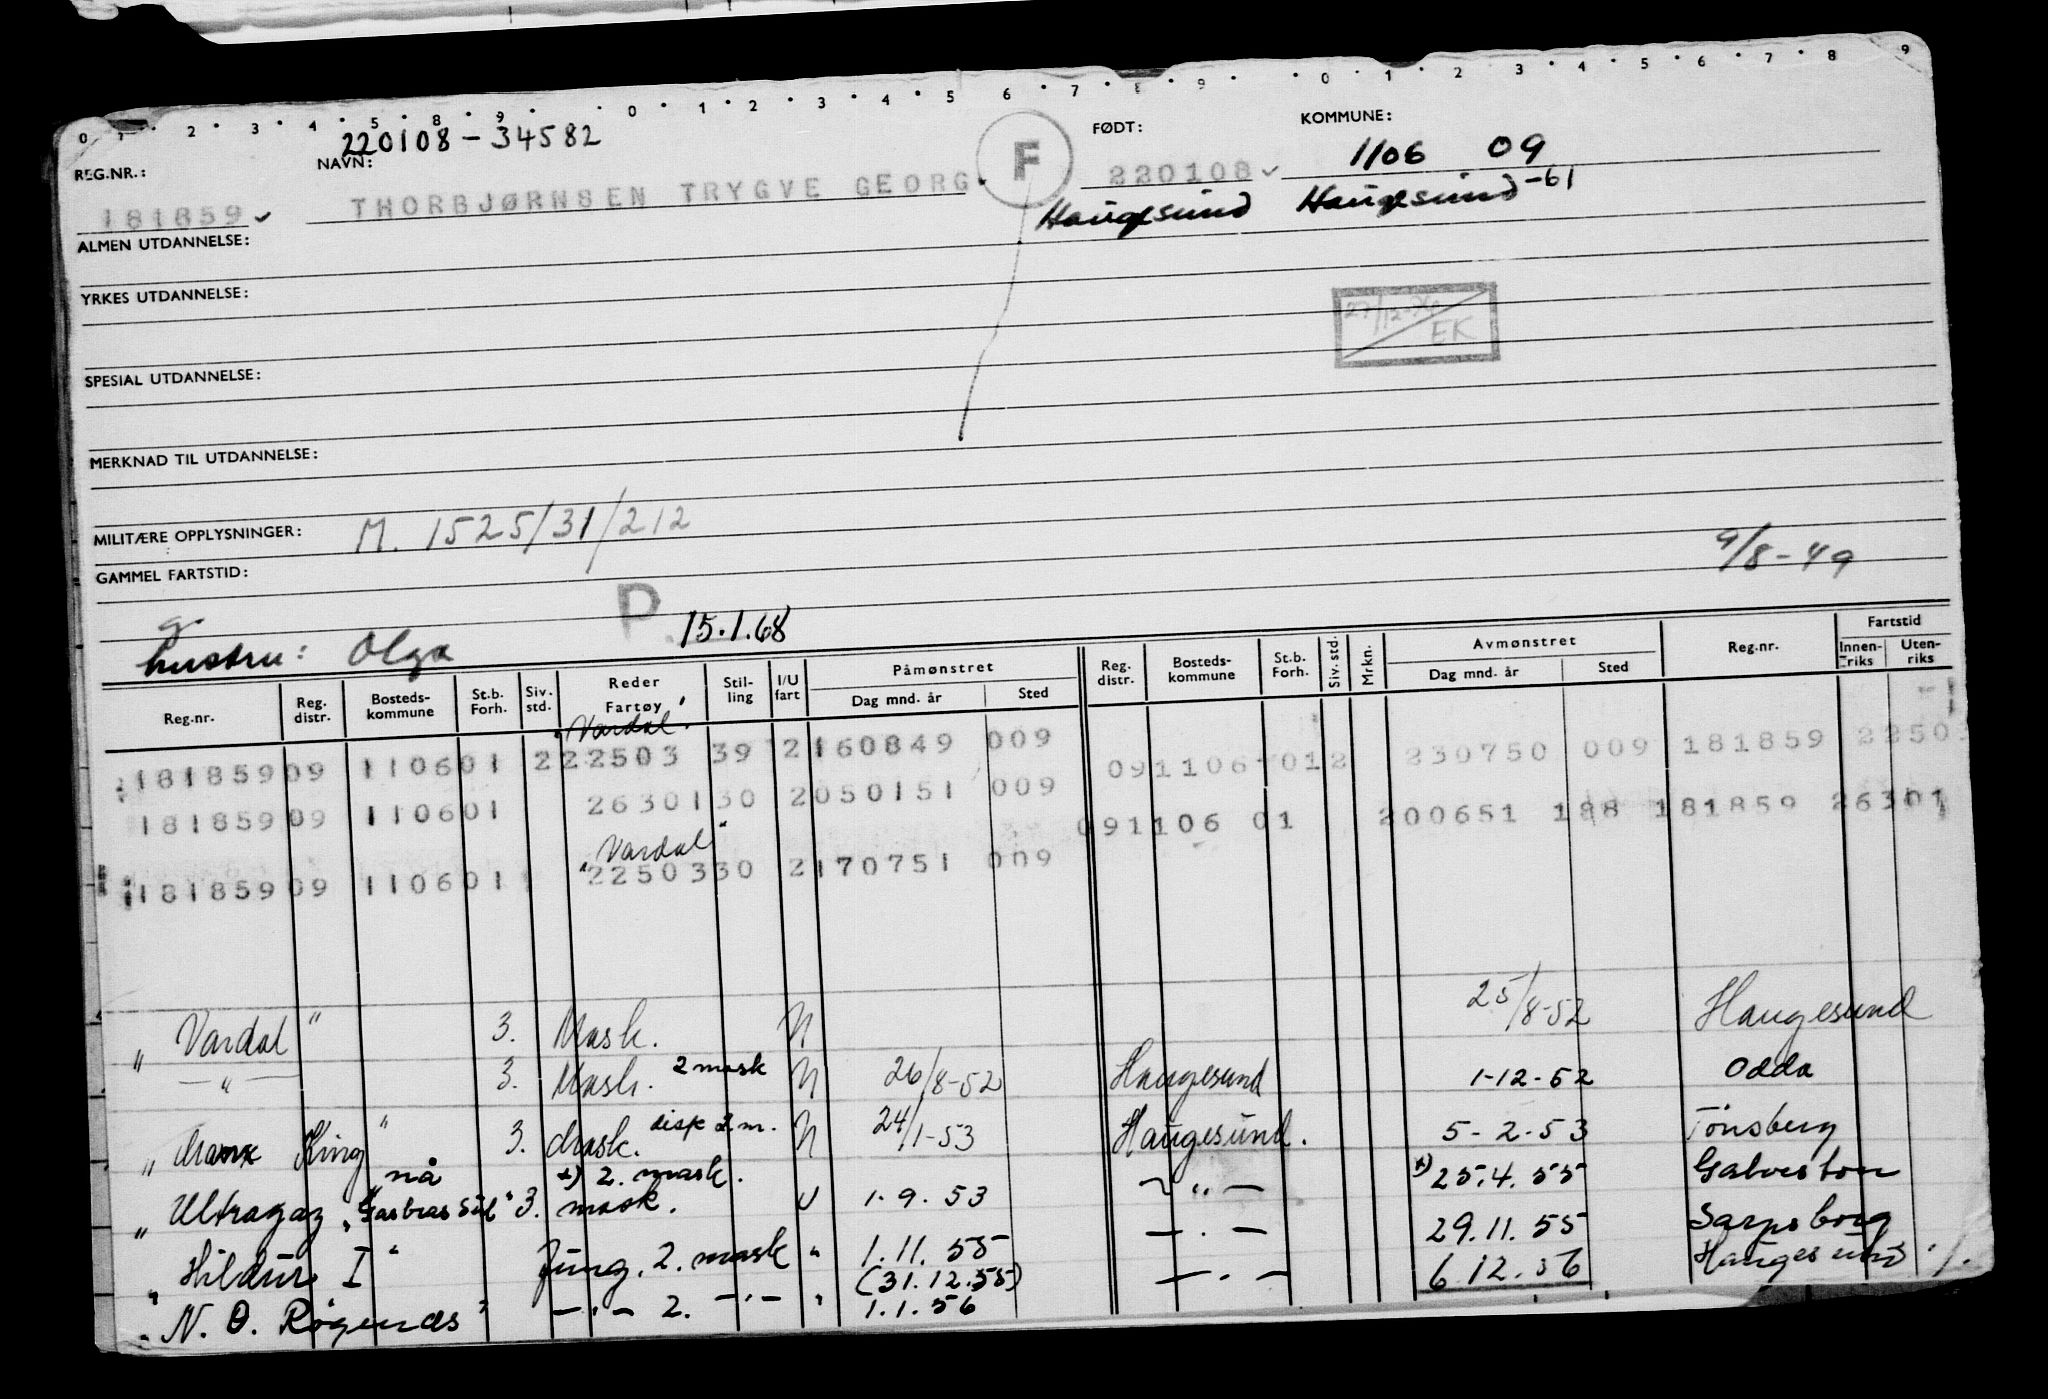 0 1 2 3 4 5 8 9 0 1 2 3 4 5 6 7 8 9 0 1 2 3 4 5 6 7 8 9
220108-34582
REG.NR.: NAVN: F FØDT: KOMMUNE:
181859 THORBJØRNSEN TRYGVE GEORG 220108 1106 09
Haugesund Haugesund -61
ALMEN UTDANNELSE:
YRKES UTDANNELSE:
EK
SPESIAL UTDANNELSE:
MERKNAD TIL UTDANNELSE:
MILITÆRE OPPLYSNINGER: M. 1525/31/212
GAMMEL FARTSTID: 9/8-49
P 15.1.68
hustru: Olga
Reg.nr. Reg. distr. Bosteds-kommune St.b. Forh. Siv. std. Reder Fartøy Stil-ling I/U fart Påmønstret Dag mnd. år Sted Reg. distr. Bosteds-kommune St.b. Forh. Siv. std. Mrkn. Avmønstret Dag mnd. år Sted Reg.nr. Fartstid Innen-riks Uten-riks
"Vardal"
181859 09 1106 01 2 22503 39 2 160849 009 09 1106 01 2 230750 009 181859 2250
181859 09 1106 01 26301 30 2 050151 009 09 1106 01 200651 188 181859 26301
"Vardal"
181859 09 1106 01 22503 30 2 170751 009
"Vardal" 3. Mask. N 25/8-52 Haugesund
—"— 3. Mask. 2 mask N 26/8-52 Haugesund 1-12-52 Odda
" King" 3. Mask. disp 2 m. N 24/1-53 Haugesund. 5-2-53 Tönsberg
"Ultragaz nå " 3. mask. x) 2. mask. U 1.9.53 —"— x) 25.4.55 Galveston
"Hildur I" Jung. 2. mask " 1.11.55 (31.12.55) —"— 29.11.55 Sarpsborg
"N. O. Røgenæs" —"— 2. —"— " 1.1.56 —"— 6.12.56 Haugesund ./.